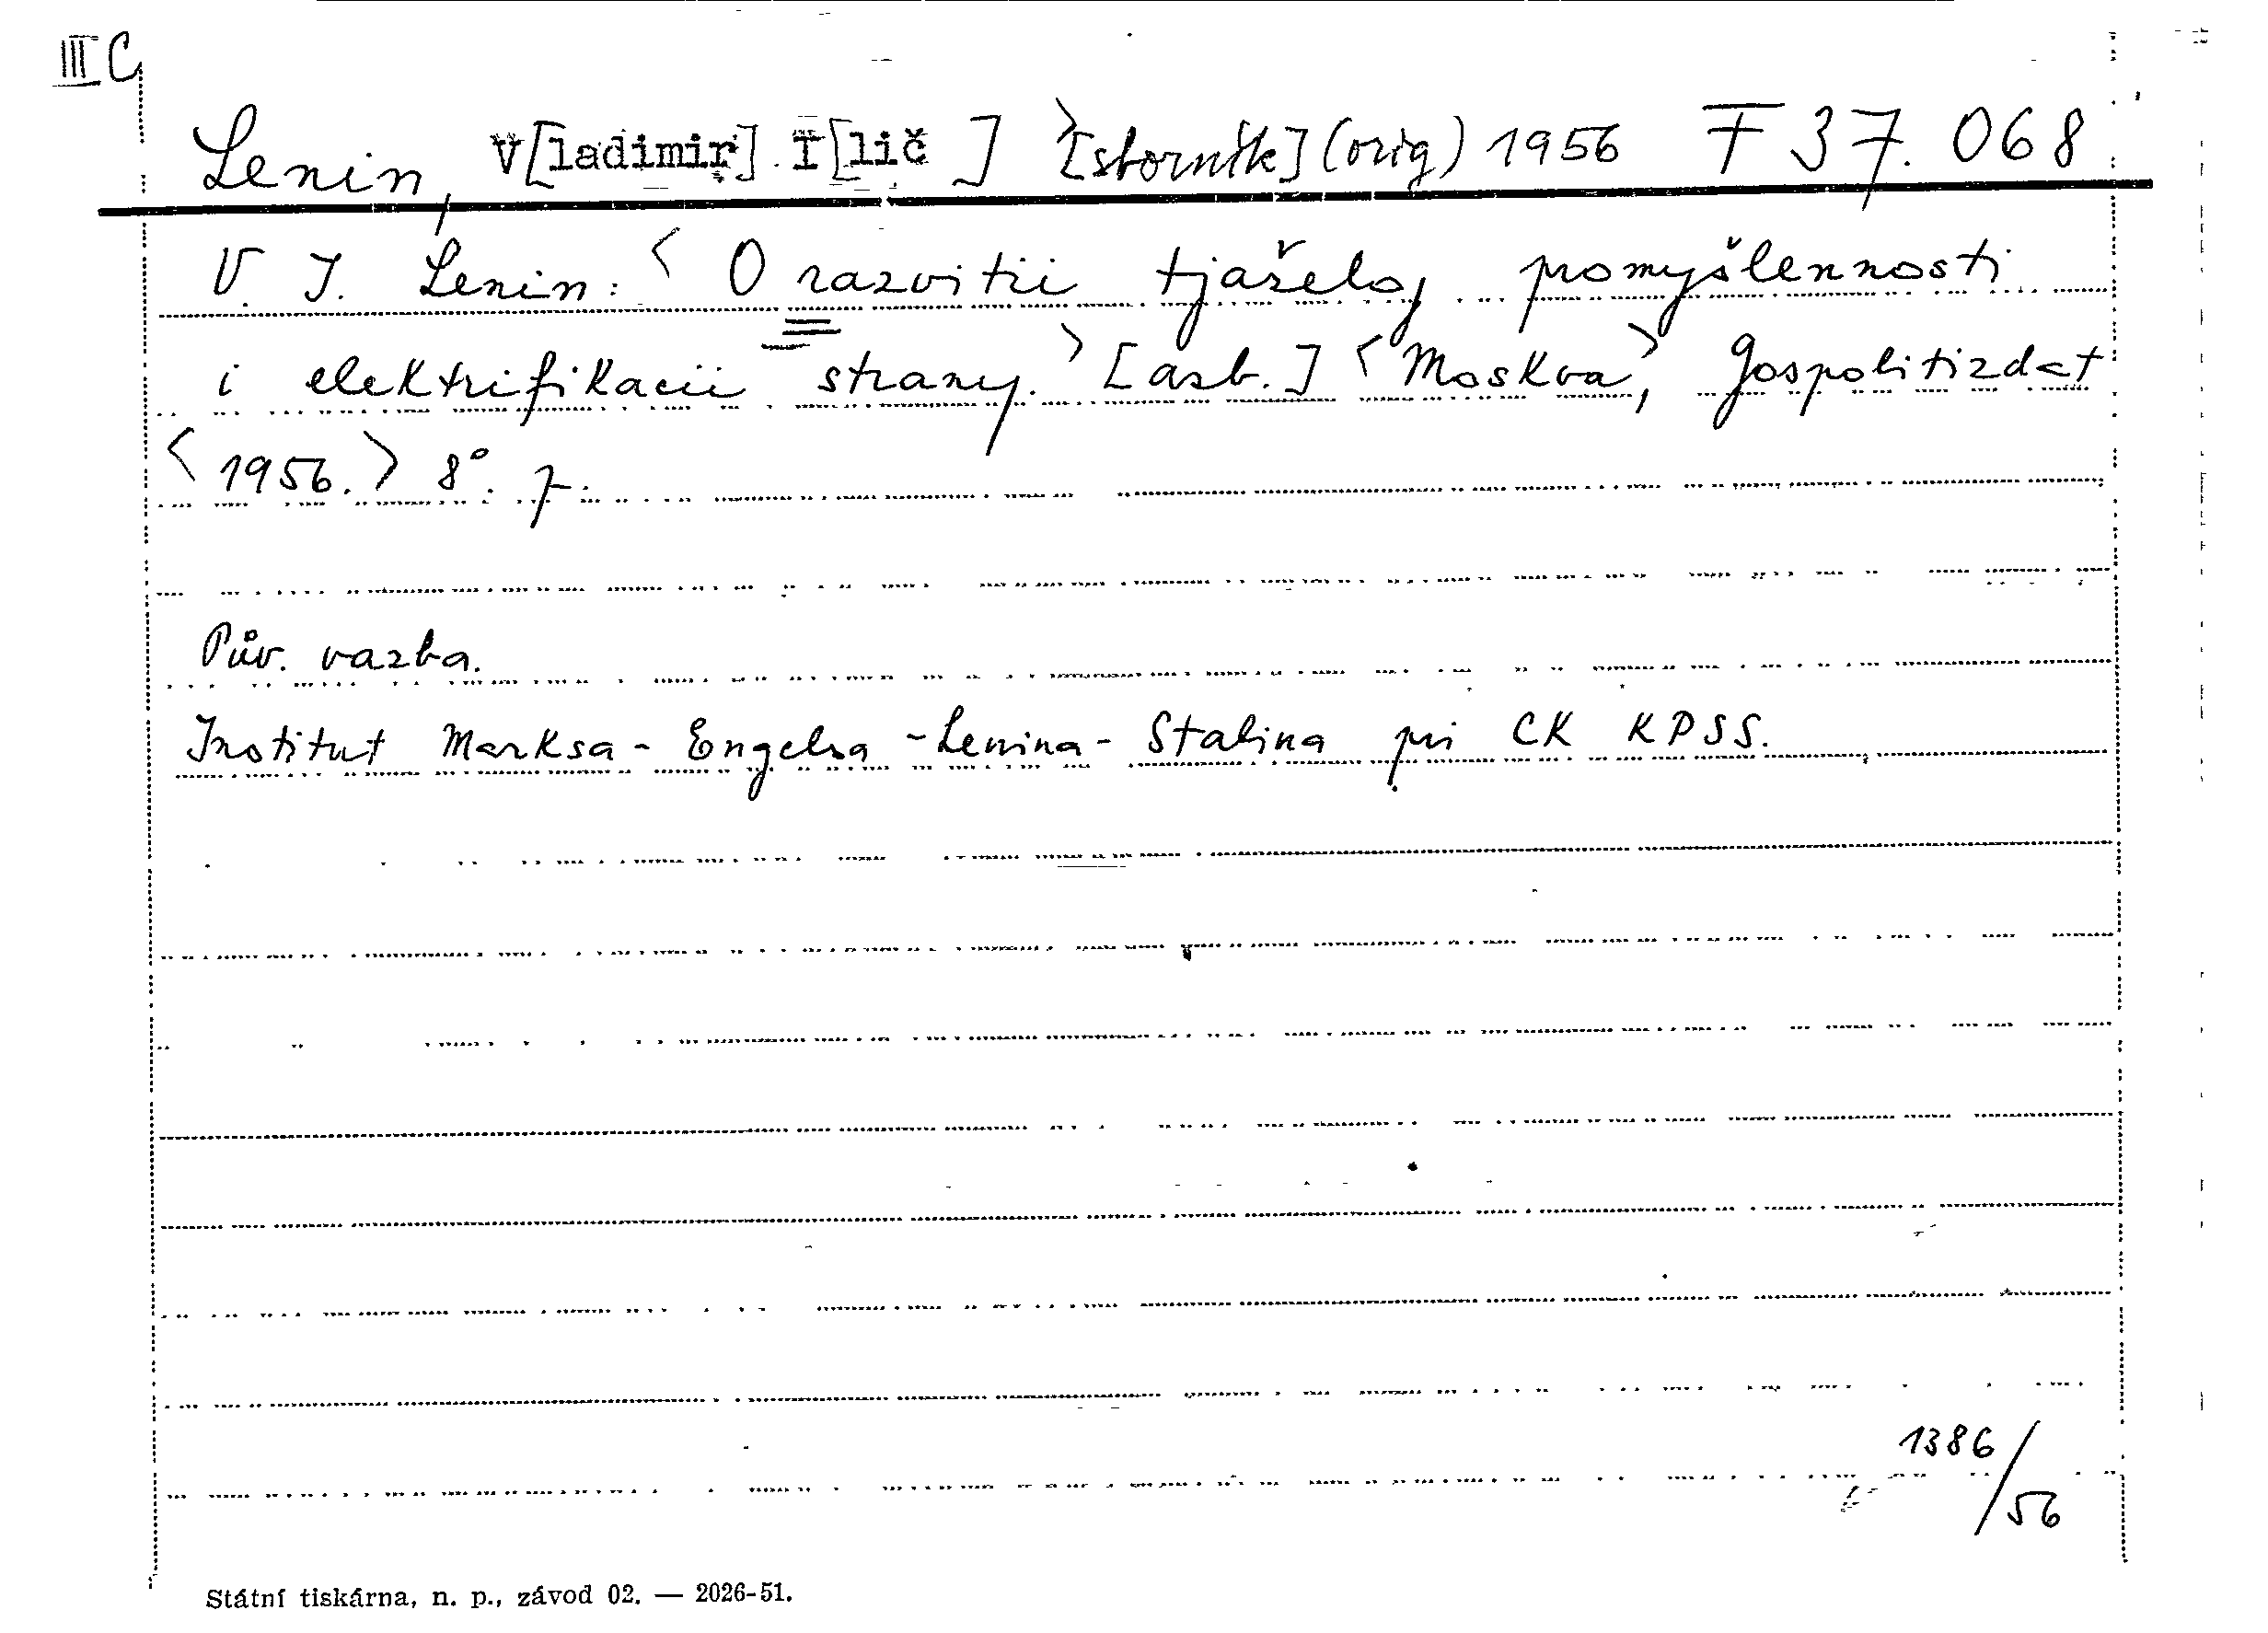 III C
Lenin, V[ladimir] I[lič ] > [sborník] (orig) 1956 F 37.068
V. I. Lenin: < O razvitii tjaželoj promyšlennosti
i elektrifikacii strany. > [azb.] < Moskva, > Gospolitizdat
< 1956. > 8°.
Pův. vazba.
Institut Marksa - Engelsa - Lenina - Stalina pri CK KPSS.
1386/56
Státní tiskárna, n. p., závod 02. — 2026-51.